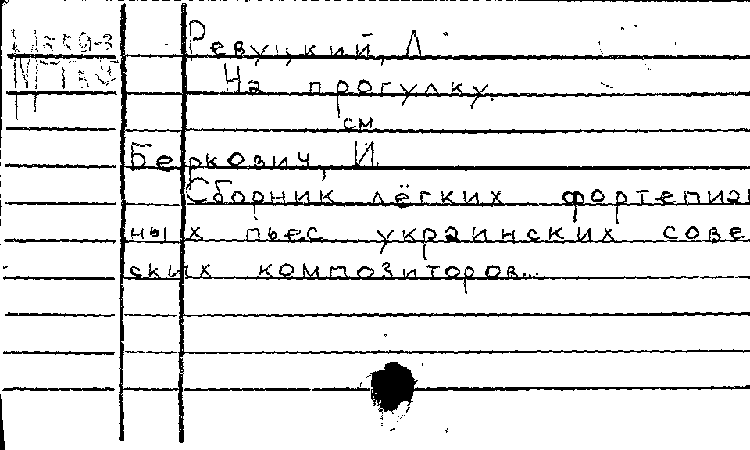 Ревуцкий, Л.
На прогулку.
см
Беркович, И.
Сборник лёгких фортепиан
ных пьес украинских сове
ских композиторов...